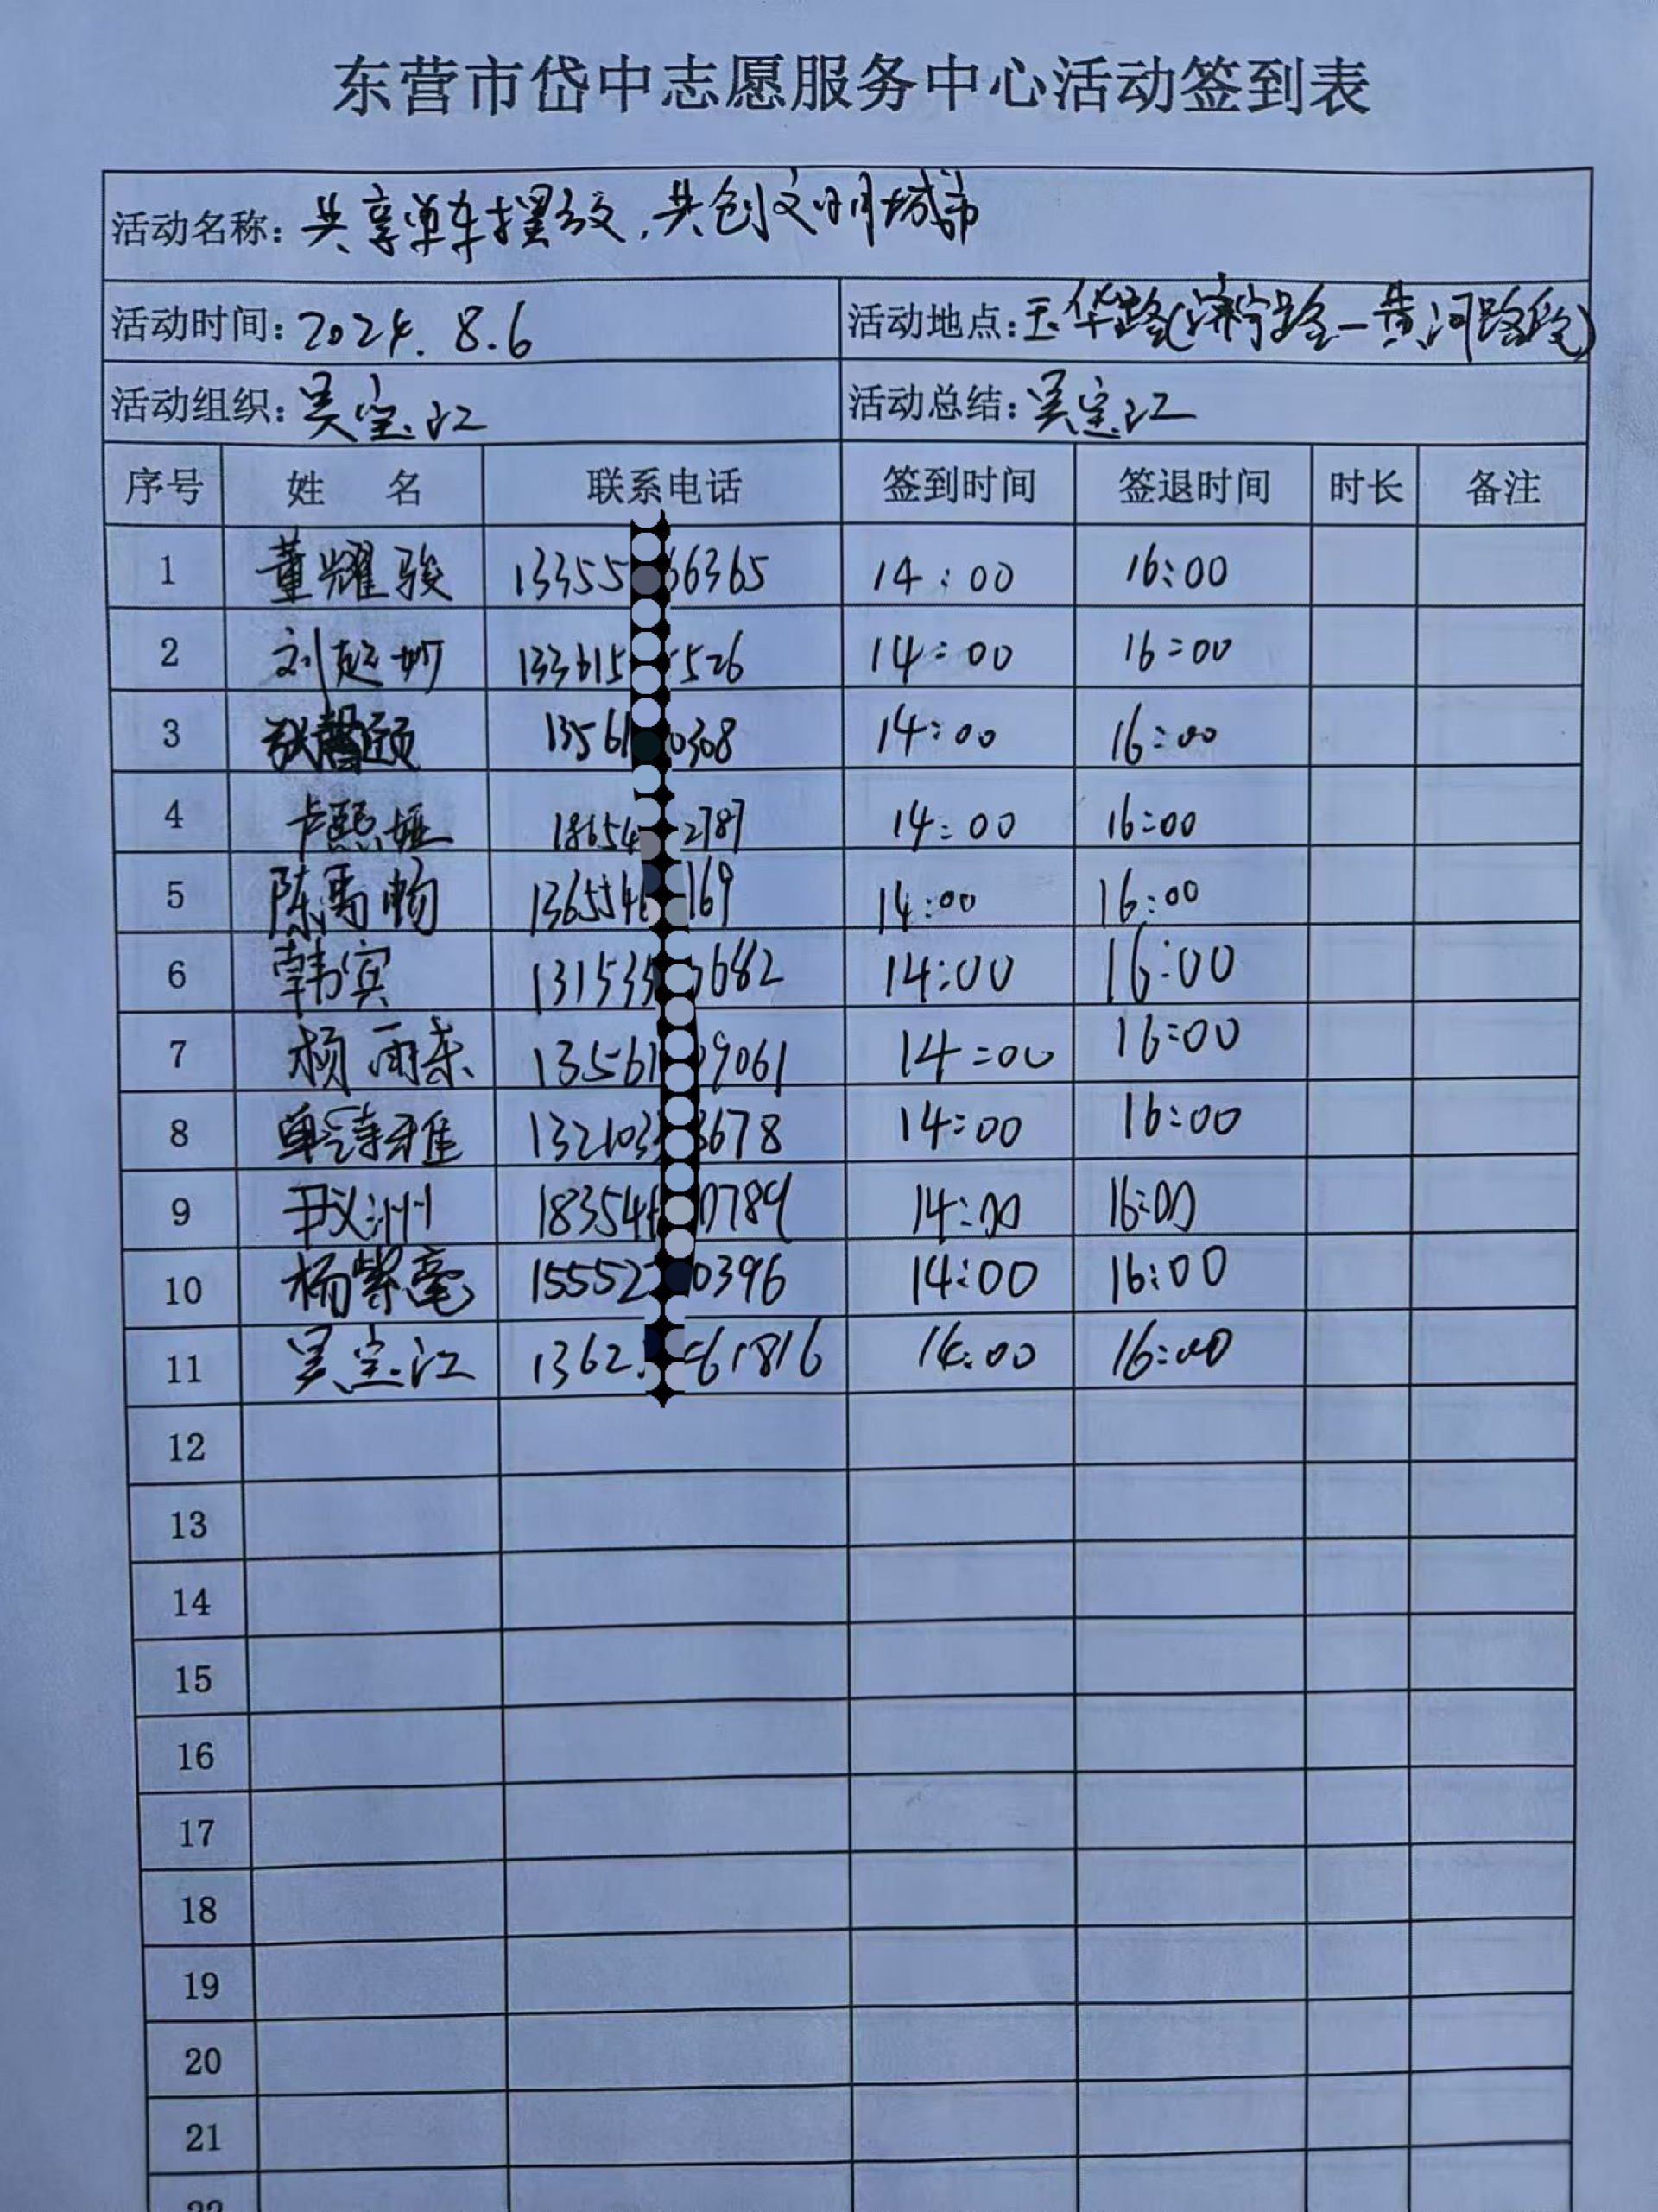 东营市岱中志愿服务中心活动签到表
活动名称：共享单车摆放，共创文明城市
活动时间：2024.8.6 活动地点：玉华路(济宁路—黄河路段)
活动组织：吴宝江 活动总结：吴宝江
序号 姓 名 联系电话 签到时间 签退时间 时长 备注
1 董耀骏 13355 66365 14:00 16:00
2 刘起妙 133615 5526 14:00 16:00
3 13561 0308 14:00 16:00
4 卢熙 18654 2787 14:00 16:00
5 陈禹畅 136554 169 14:00 16:00
6 韩宾 131535 682 14:00 16:00
7 杨雨東 13561 9061 14:00 16:00
8 单诗雅 132103 678 14:00 16:00
9 尹义洲 18354 0789 14:00 16:00
10 杨紫毫 15552 0396 14:00 16:00
11 吴宝江 1362 61816 14:00 16:00
12
13
14
15
16
17
18
19
20
21